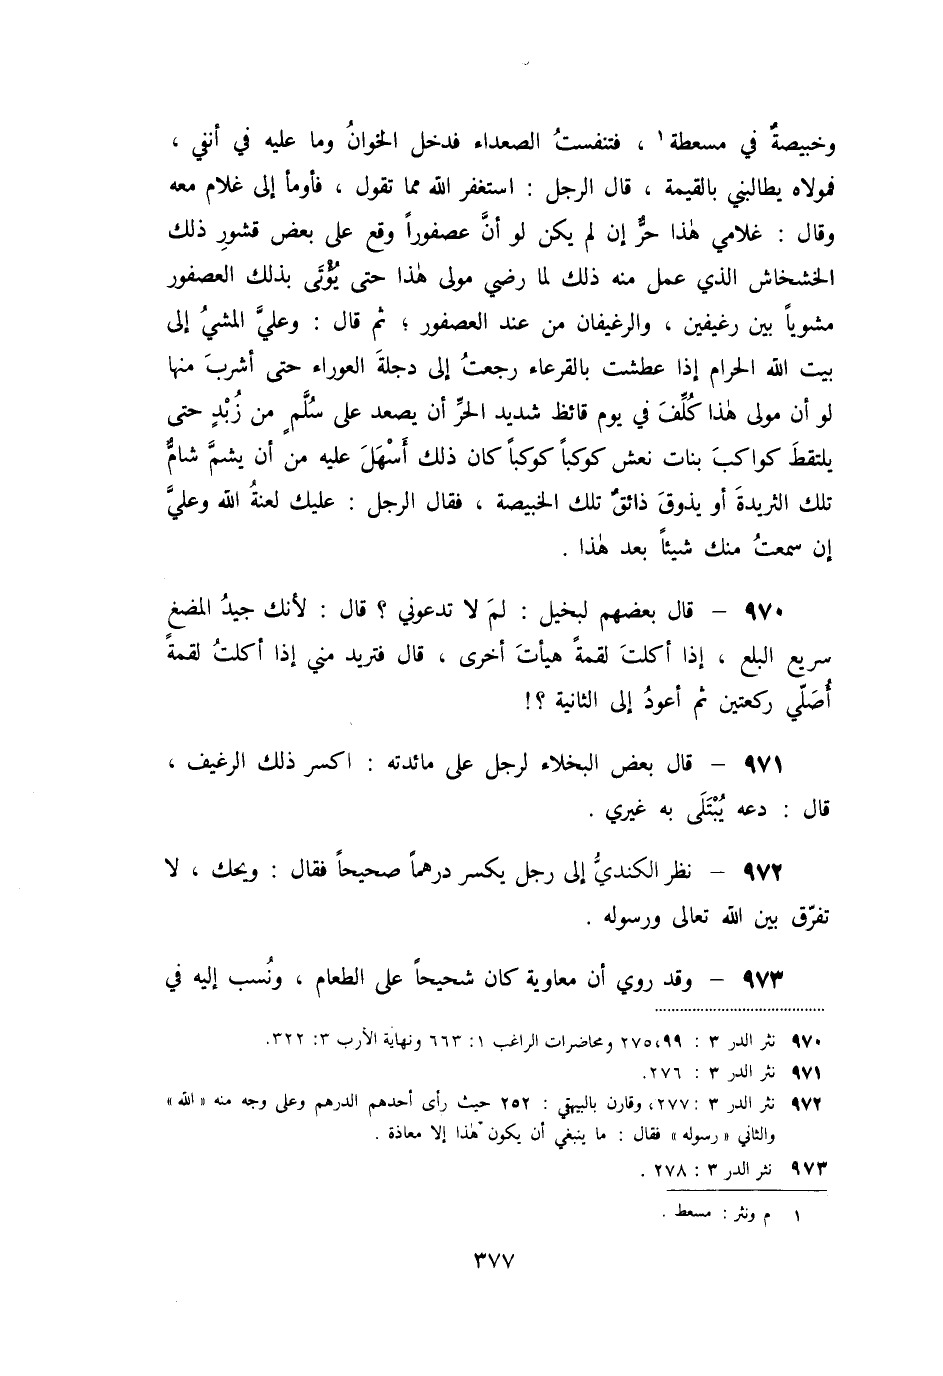 وخبيصةٌ في مسعطة١ ، فتنفستُ الصعداء فدخل الخوانُ وما عليه في أنفي ،
فمولاه يطالبني بالقيمة ، قال الرجل : استغفر الله مما تقول ، فأومأ إلى غلام معه
وقال : غلامي هٰذا حرٌّ إن لم يكن لو أنَّ عصفوراً وقع على بعض قشورِ ذلك
الخشخاش الذي عمل منه ذلك لما رضي مولى هٰذا حتى يُؤْتَى بذلك العصفور
مشوياً بين رغيفين ، والرغيفان من عند العصفور ؛ ثم قال : وعليَّ المشيُ إلى
بيت الله الحرام إذا عطشت بالقرعاء رجعتُ إلى دجلةَ العوراء حتى أشربَ منها
لو أن مولى هٰذا كُلِّفَ في يوم قائظ شديد الحرِّ أن يصعد على سُلَّمٍ من زُبْدٍ حتى
يلتقطَ كواكبَ بنات نعش كوكباً كوكباً كان ذلك أَسْهَلَ عليه من أن يشمَّ شامٌّ
تلك الثريدةَ أو يذوقَ ذائقٌ تلك الخبيصة ، فقال الرجل : عليك لعنةُ الله وعليَّ
إن سمعتُ منك شيئاً بعد هٰذا .
٩٧٠ – قال بعضهم لبخيل : لمَ لا تدعوني ؟ قال : لأنك جيدُ المضغ
سريع البلع ، إذا أكلتَ لقمةً هيأتَ أخرى ، قال فتريد مني إذا أكلتُ لقمةً
أُصَلّي ركعتين ثم أعودُ إلى الثانية ؟!
٩٧١ – قال بعض البخلاء لرجل على مائدته : اكسر ذلك الرغيف ،
قال : دعه يُبْتَلَى به غيري .
٩٧٢ – نظر الكنديُّ إلى رجل يكسر درهماً صحيحاً فقال : ويحك ، لا
تفرّق بين الله تعالى ورسوله .
٩٧٣ – وقد روي أن معاوية كان شحيحاً على الطعام ، ونُسب إليه في
٩٧٠ نثر الدر ٣ : ٩٩، ٢٧٥ ومحاضرات الراغب ١: ٦٦٣ ونهاية الأرب ٣: ٣٢٢.
٩٧١ نثر الدر ٣ : ٢٧٦.
٩٧٢ نثر الدر ٣ : ٢٧٧، وقارن بالبيهقي : ٢٥٢ حيث رأى أحدهم الدرهم وعلى وجه منه «الله»
والثاني «رسوله» فقال : ما ينبغي أن يكون هٰذا إلا معاذة .
٩٧٣ نثر الدر ٣ : ٢٧٨ .
١ م ونثر : مسعط .
٣٧٧